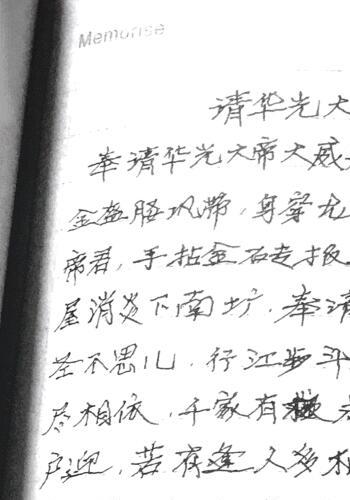 Memorise
请华光大
奉请华光大帝大威
金盔 风带,身穿
帝君,手拈金石专报
屋消炎下南 . 奉请
圣不思儿. 行江步斗
尽相依. 千家有
户迎. 若有逢人多